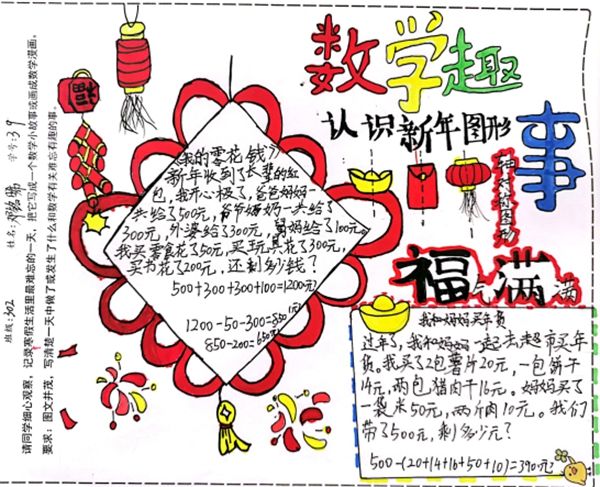 请同学细心观察，记录寒假生活里最难忘的一天，把它写成一个数学小故事或画成数学漫画。
要求：图文并茂，写清楚一天中做了或发生了什么和数学有关难忘有趣的事。
班级：302
姓名：
学号：39
福
数学趣事
认识新年图形
种对称图形
福气满满
《我的零花钱》
新年收到了长辈的红
包，我开心极了，爸爸妈妈一
共给了500元，爷爷奶奶一共给了
300元，外婆给了300元，舅妈给了100元。
我买零食花了50元，买玩具花了300元，
买书花了200元，还剩多少钱？
500+300+300+100=1200(元)
1200-50-300=850(元)
850-200=650(元)
我和妈妈买年货
过年了，我和妈妈一起去超市买年
货。我买了2包薯片20元，一包饼干
14元，两包猪肉干16元。妈妈买了
一袋米50元，两斤肉10元。我们
带了500元，剩多少元？
500-(20+14+16+50+10)=390(元)